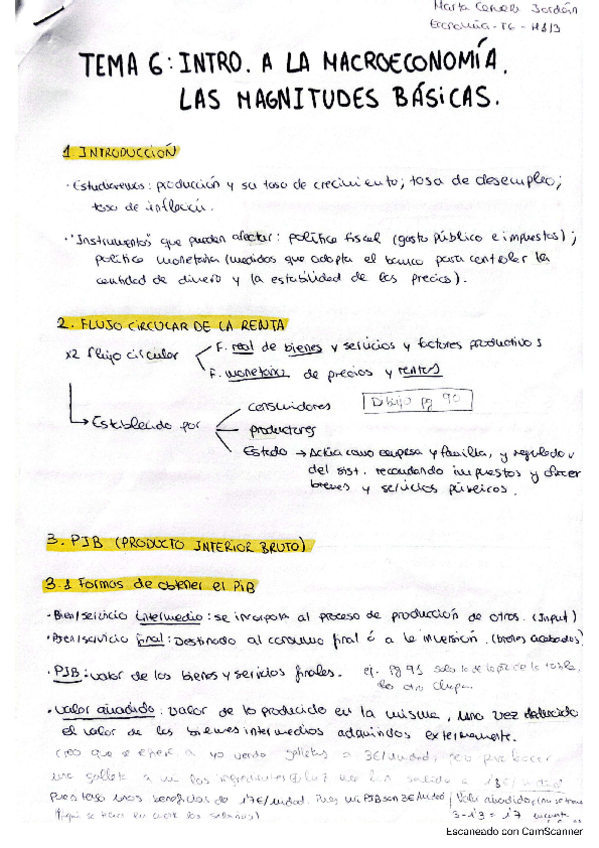 Marta
Economía - T6 -
TEMA 6: INTRO. A LA MACROECONOMÍA.
LAS MAGNITUDES BÁSICAS.
1 INTRODUCCIÓN
· Estudiaremos: producción y su tasa de crecimiento; tasa de desempleo;
tasa de inflación.
· "Instrumentos" que pueden afectar: política fiscal (gasto público e impuestos);
política monetaria (medidas que adopta el banco para controlar la
cantidad de dinero y la estabilidad de los precios).
2. FLUJO CIRCULAR DE LA RENTA
x2 flujo circular
F. real de bienes y servicios y factores productivos
F. monetario de precios y rentas
Dibujo pg 90
Establecido por
consumidores
productores
Estado → Actúa como empresa y familia, y regulador
del sist. recaudando impuestos y ofrecer
bienes y servicios públicos.
3. PIB (PRODUCTO INTERIOR BRUTO)
3.1 Formas de obtener el PIB
· Bien/servicio intermedio: se incorpora al proceso de producción de otros. (Input)
· Bien/servicio final: Destinado al consumo final ó a la inversión. (bienes acabados)
· PIB: valor de los bienes y servicios finales. ej. pg 91 solo lo de la tabla,
lo otro
· Valor añadido: valor de lo producido en la misma, una vez deducido
el valor de los bienes intermedios adquiridos externamente.
yo vendo galletas a 3€/unidad, pero para hacer
una galleta a mi los ingredientes
pues tengo unos beneficios de 1'7€/unidad. Pues mi PIB son 3€/unidad y Valor añadido
3-1'3 = 1'7
Escaneado con CamScanner